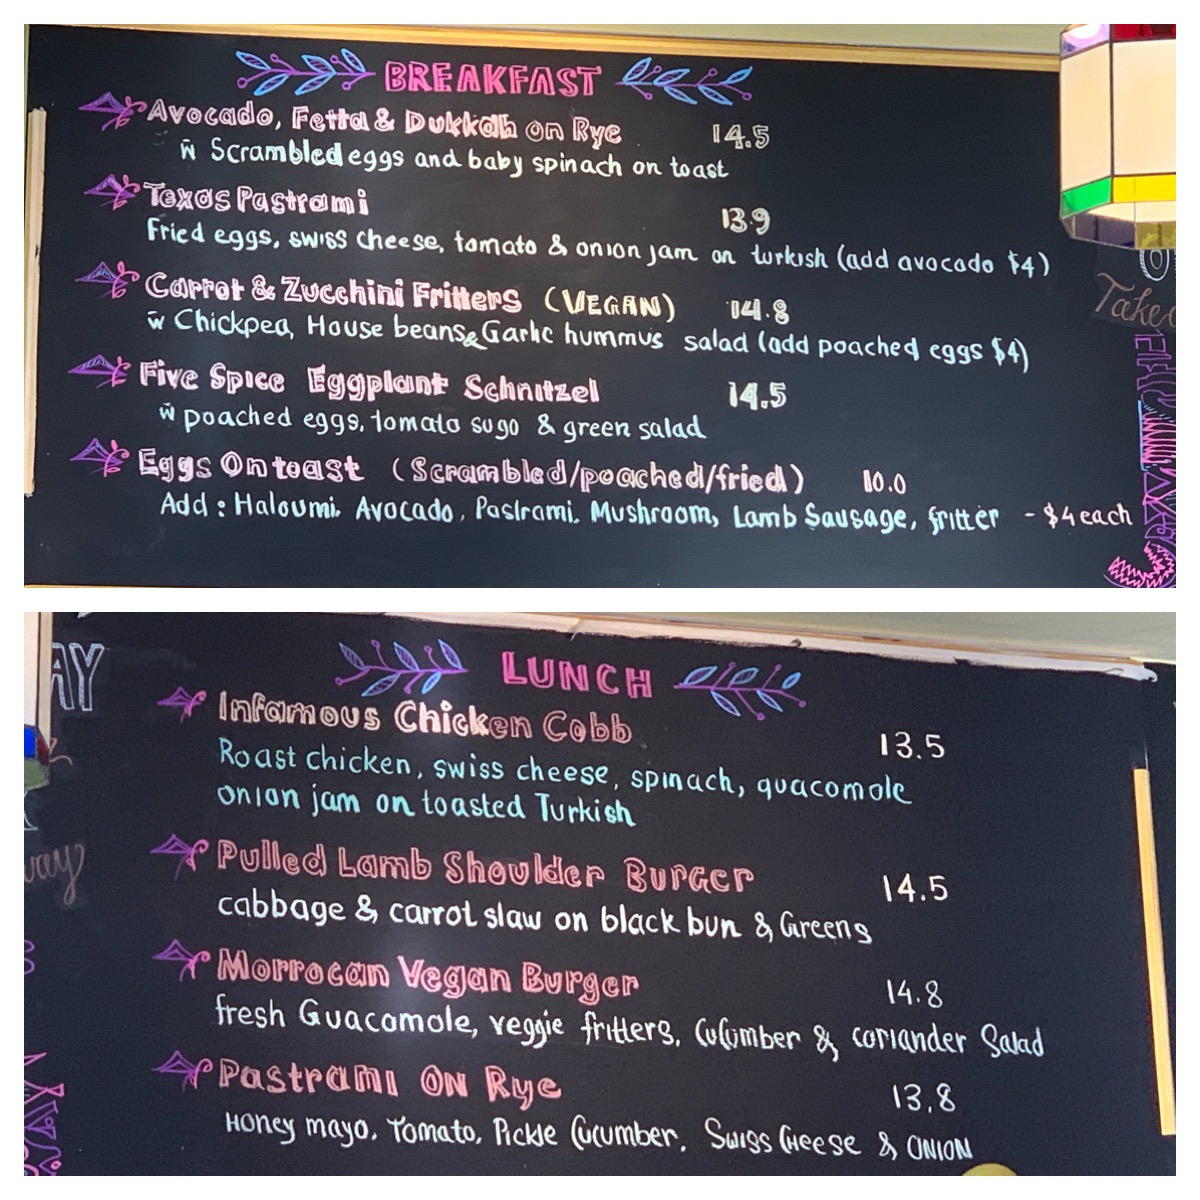 BREAKFAST
Avocado, Fetta & Dukkah on Rye 14.5
w̄ Scrambled eggs and baby spinach on toast
Texas Pastrami 13.9
Fried eggs, swiss cheese, tomato & onion jam on turkish (add avocado $4)
Carrot & Zucchini Fritters (VEGAN) 14.8
w̄ Chickpea, House beans & Garlic hummus salad (add poached eggs $4)
Five Spice Eggplant Schnitzel 14.5
w̄ poached eggs, tomato sugo & green salad
Eggs On toast (Scrambled/poached/fried) 10.0
Add : Haloumi, Avocado, Pastrami, Mushroom, Lamb Sausage, fritter - $4 each
LUNCH
Infamous Chicken Cobb 13.5
Roast chicken, swiss cheese, spinach, quacomole
onion jam on toasted Turkish
Pulled Lamb Shoulder Burger 14.5
cabbage & carrot slaw on black bun & Greens
Morrocan Vegan Burger 14.8
fresh Guacomole, veggie fritters, Cucumber & coriander Salad
Pastrami ON Rye 13.8
Honey mayo, Tomato, Pickle Cucumber, Swiss Cheese & ONION